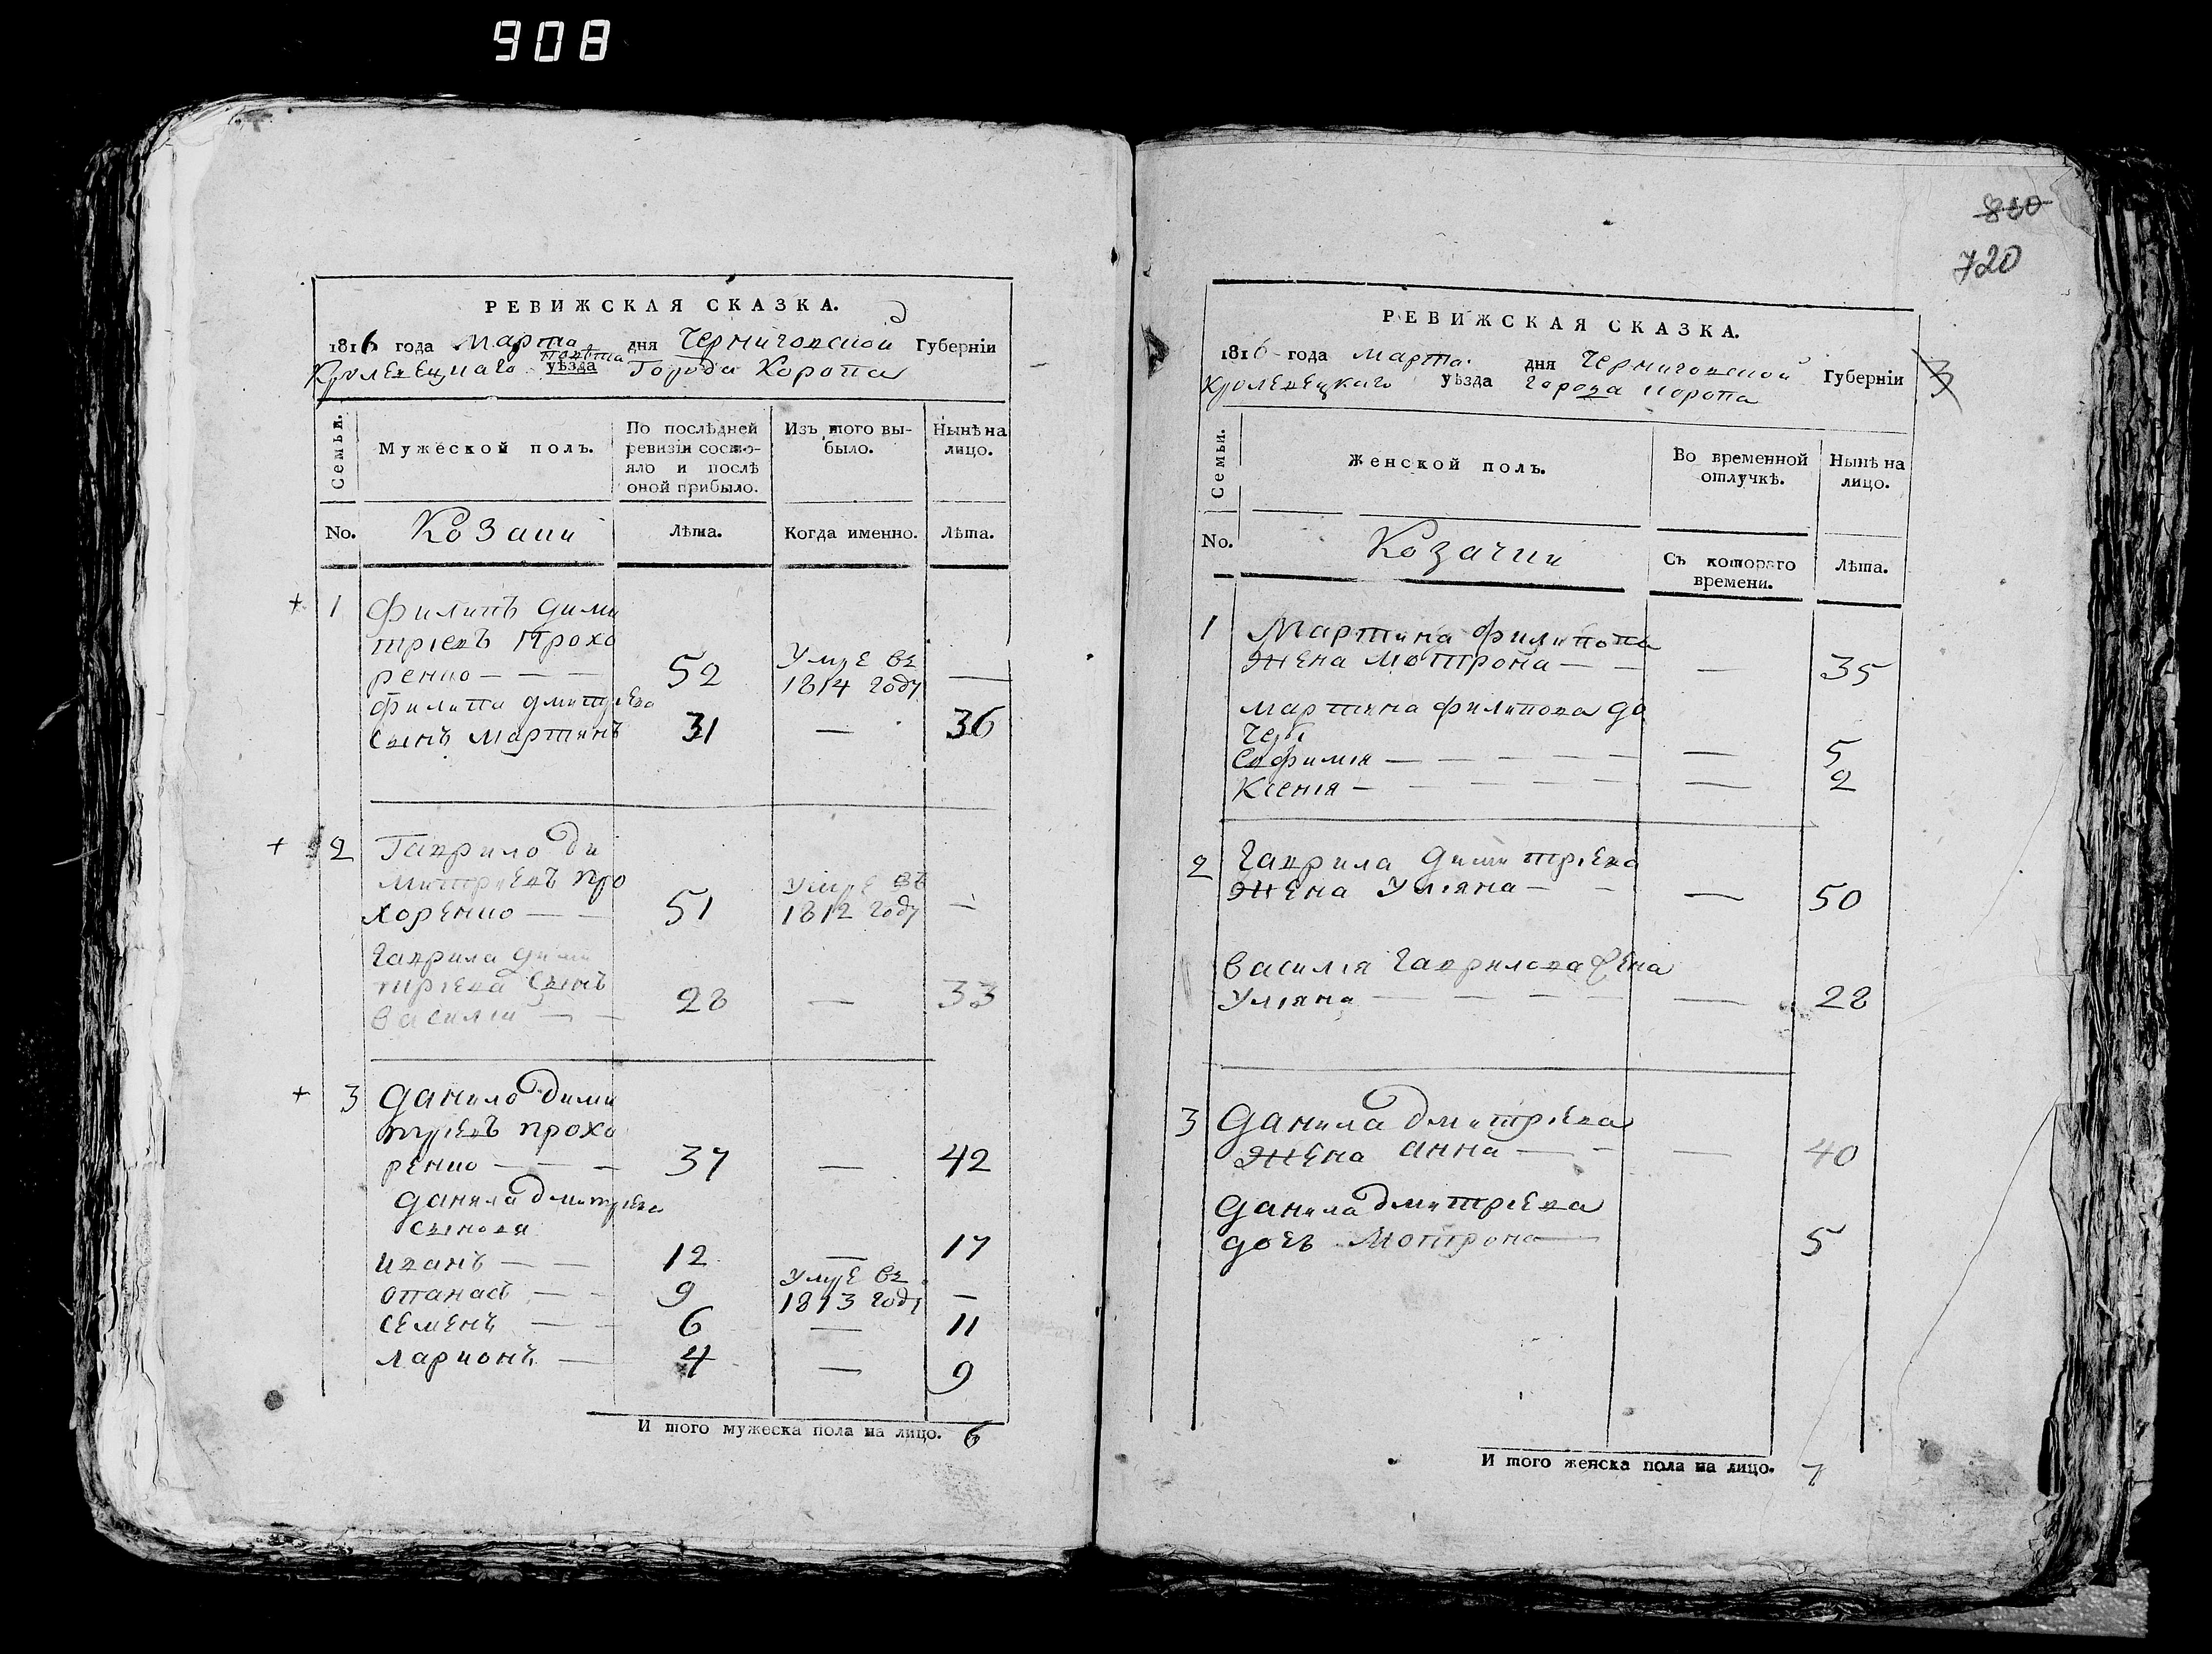 908
РЕВИЖСКАЯ СКАЗКА.
1816 года Марта дня Черниговской Губернїи
повѣта
Кролевецкаго уѣзда Города Коропа
Семьи.
Мужеской полъ.
По послѣдней ревизїи состо-
яло и послѣ
оной прибыло.
Изъ того вы-
было.
Нынѣ на
лицо.
No. Козаки Лѣта. Когда именно. Лѣта.
+ 1 Филипъ Дими
трїевъ Прохо
ренко — — — 52 Умре въ 1814 году —
Филипа Дмитрїева
сынъ Мартинъ 31 — 36
+ 2 Гаврило Ди
митрїевъ Про
хоренко — — 51 Умре въ 1812 году —
Гаврила Дими
трїева сынъ
Василїй — — 28 — 33
+ 3 Данило Дими
трїевъ Прохо
ренко — — — 37 — 42
Данила Дмитрїева
сыновя
Иванъ — — 12 — 17
Опанасъ — — 9 Умре въ 1813 году —
Семенъ — — 6 — 11
Ларионъ — 4 — 9
И того мужеска пола на лицо. 6
800
720
РЕВИЖСКАЯ СКАЗКА.
1816 года Марта дня Черниговской Губернїи 3
Кролевецкаго уѣзда города Коропа
Семьи.
Женской полъ.
Во временной
отлучкѣ.
Нынѣ на
лицо.
No. Козачки Съ котораго
времени. Лѣта.
1 Мартина Филипова
жена Мотрона — — — 35
Мартина Филипова до
чери
Евфимїя — — — — — — 5
Ксенїя — — — — — — 2
2 Гаврила Димитрїева
жена Улїяна — — — 50
Василїя Гаврилова жена
Улїяна — — — — — 28
3 Данила Дмитрїева
жена Анна — — — 40
Данила Дмитрїева
дочь Мотрона — 5
И того женска пола на лицо. 7